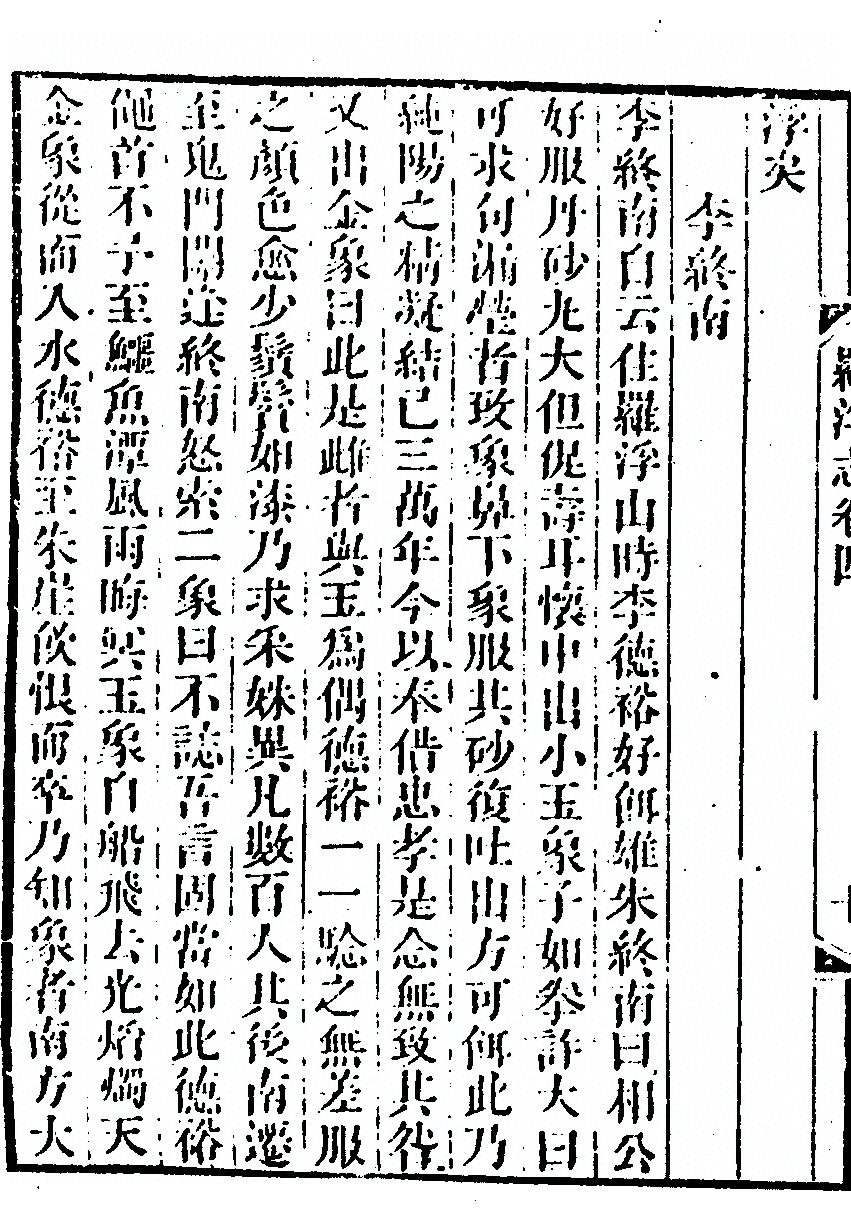 浮矣
李終南
李終南自云住羅浮山時李德裕好餌雄朱終南曰相公
好服丹砂尤大但促壽耳懷中出小玉象子如拳許大曰
可求勾漏瑩者致象鼻下象服其砂復吐出方可餌此乃
純陽之精凝結已三萬年今以奉借忠孝是念無致其咎
又出金象曰此是雌者與玉為偶德裕一一驗之無差服
之顏色愈少鬚鬢如漆乃求采姝異凡數百人其後南遷
至鬼門關逢終南怒索二象曰不誌吾言固當如此德裕
俛首不予至鱷魚潭風雨晦冥玉象自船飛去光焰燭天
金象從而入水德裕至朱崖飲恨而卒乃知象者南方大
羅浮志卷四